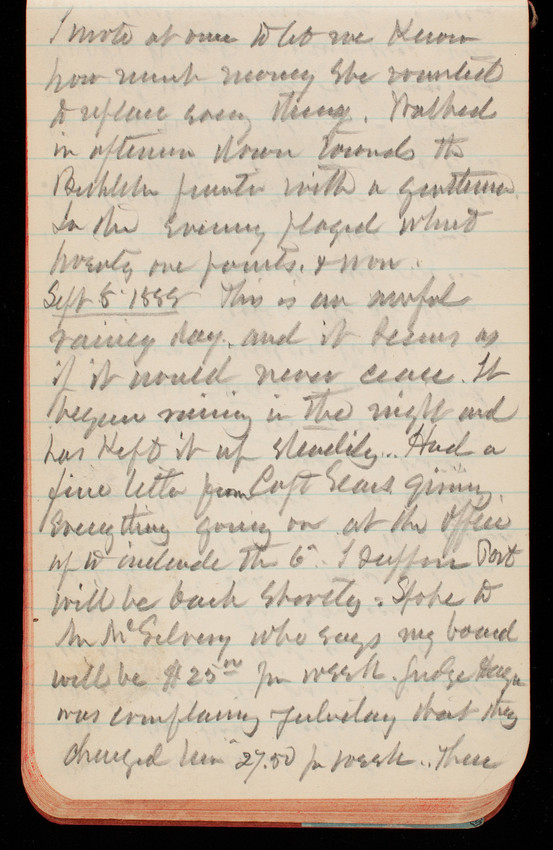 I wrote at once to let me know
how much money she wanted
to replace every thing. Walked
in afternoon down towards the
with a gentleman
In the Evening played whist
twenty one points. & won.
Sept 8 1889 This is an awful
rainey day. and it seems as
if it would never cease. It
began raining in the night and
has Kept it up steadily.. Had a
fine letter from Capt Sears giving
Everything going on at the office
up to include the 6". I suppose Port
will be back shortly. Spoke to
Mr McSilvery who says my board
will be $25 00 per week. Judge
was complaining yesterday that they
charged him 27.50 per week.. There